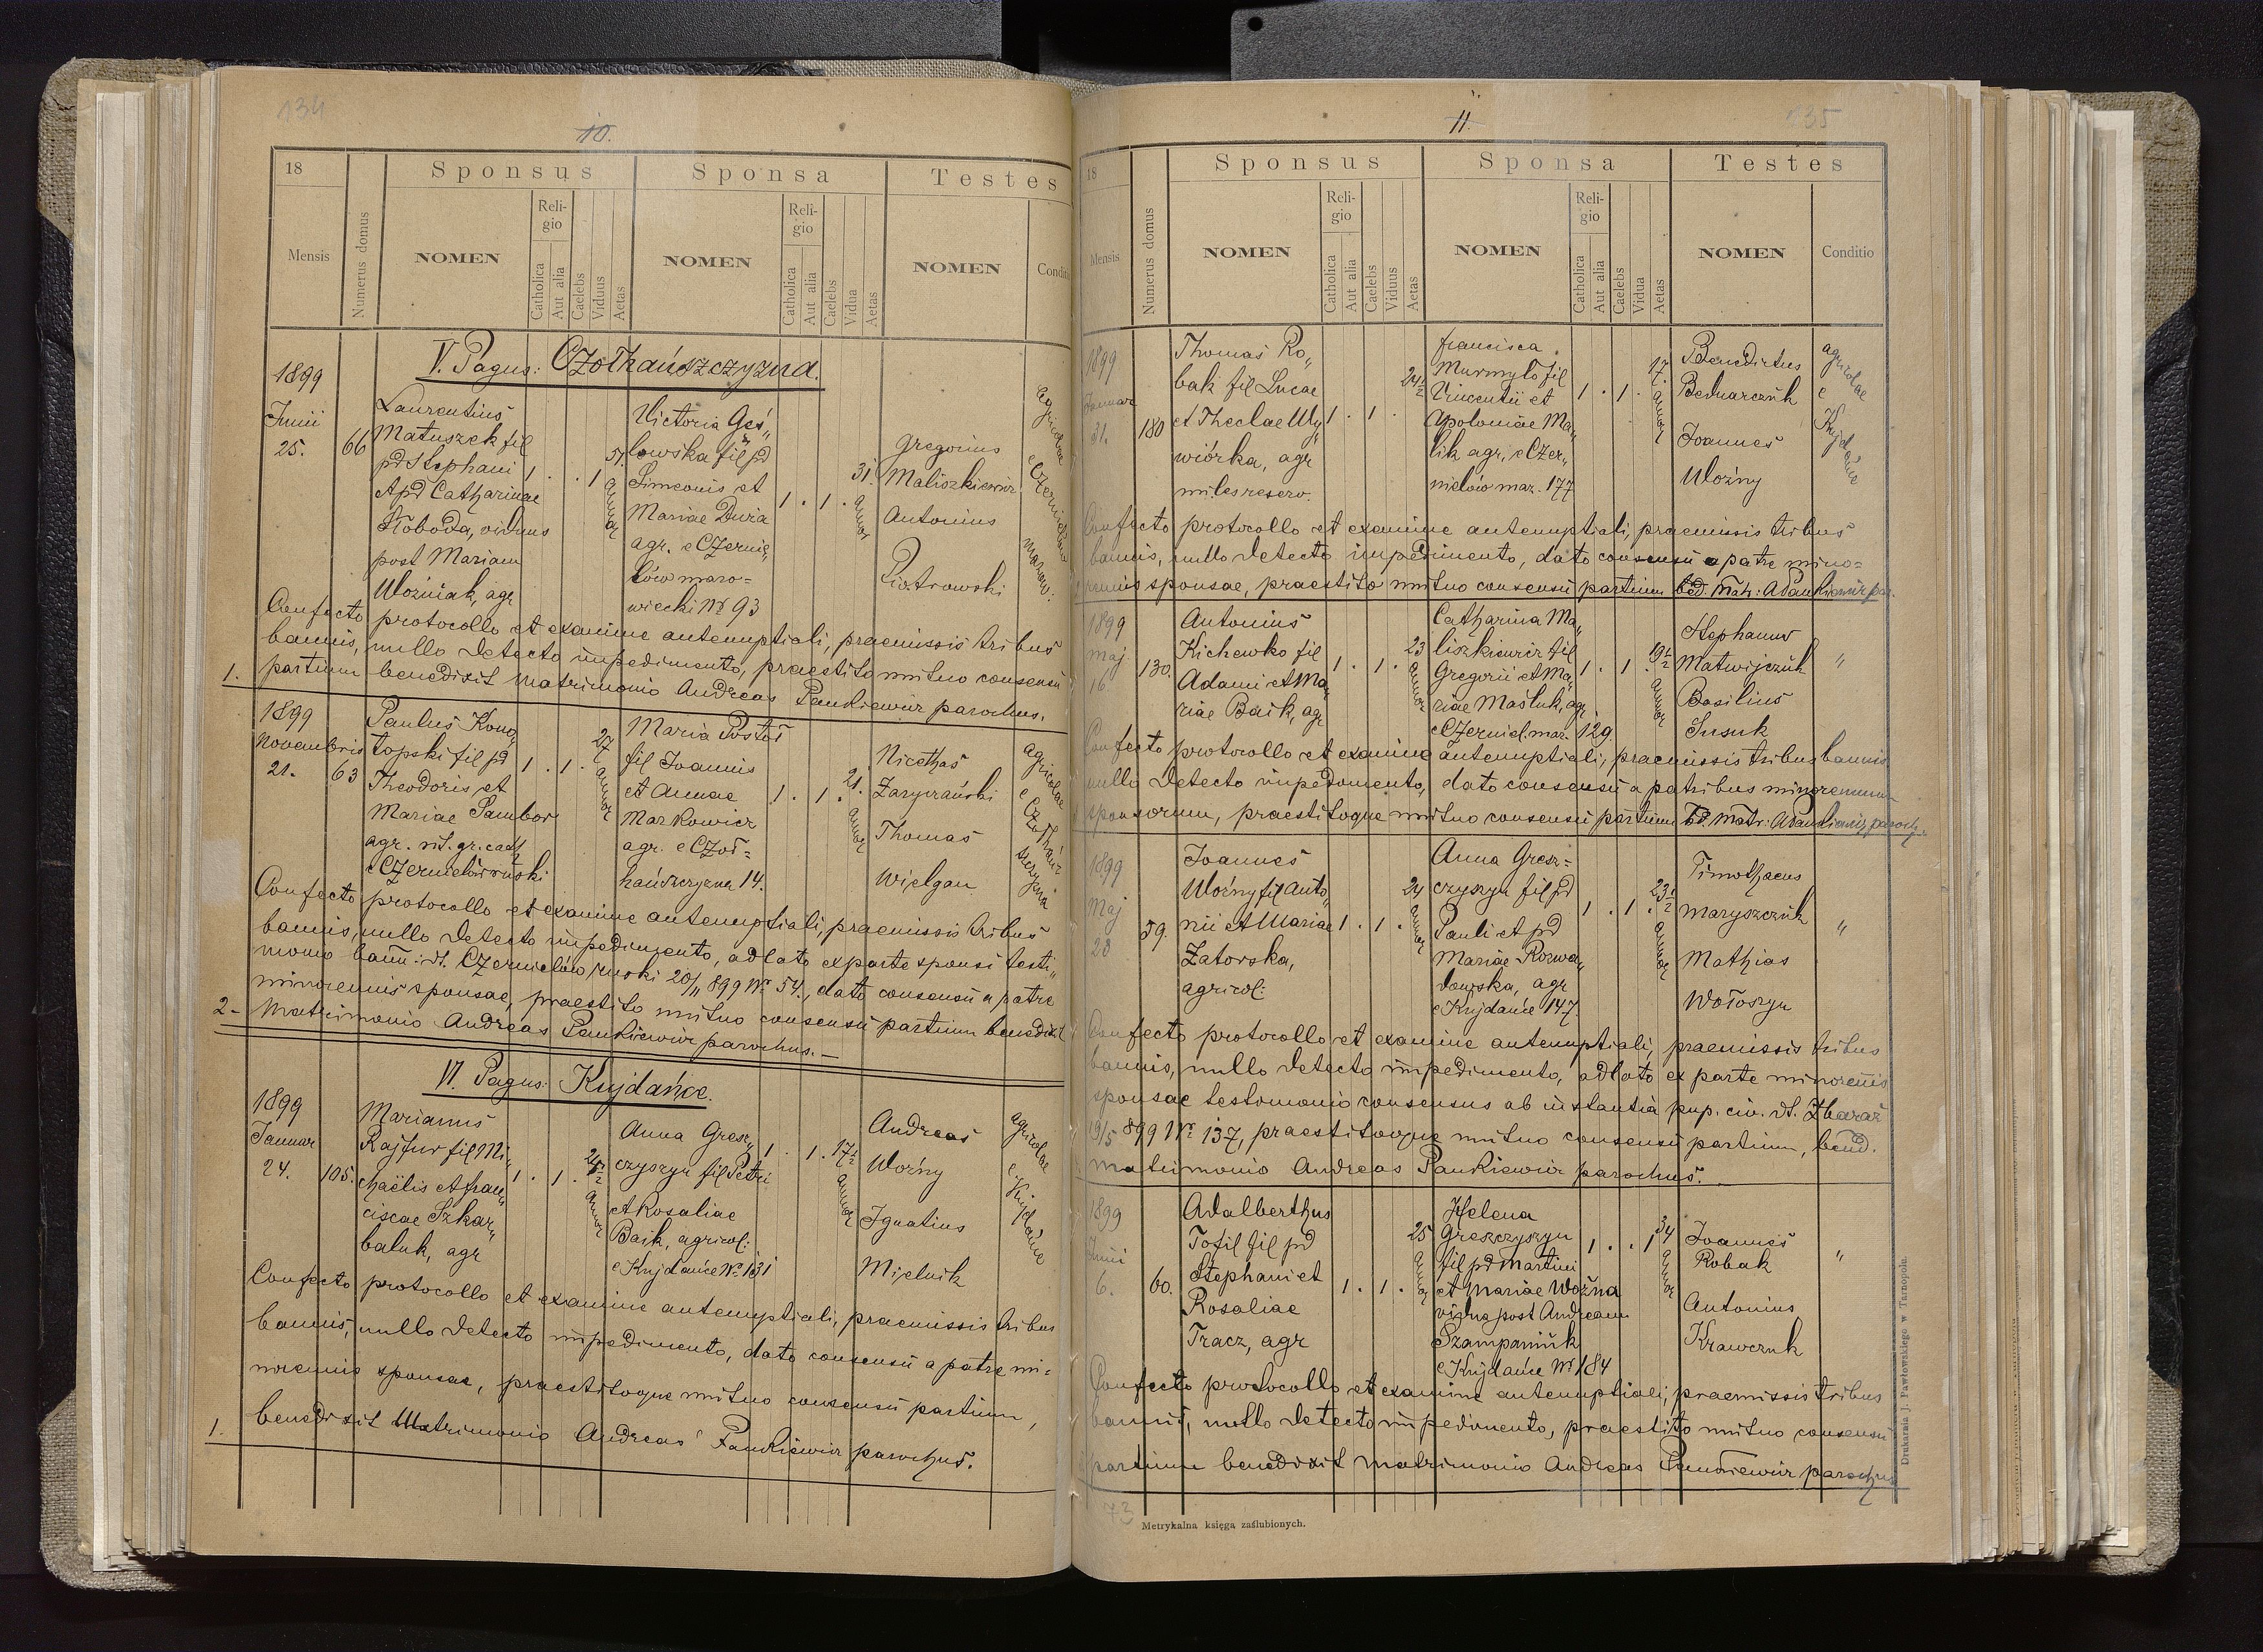 134
10.
18
Sponsus
Sponsa
Testes
Mensis
Numerus domus
NOMEN
Religio
Catholica
Aut alia
Caelebs
Viduus
Aetas
NOMEN
Religio
Catholica
Aut alia
Caelebs
Vidua
Aetas
NOMEN
Conditio
V. Pagus: Czołhańszczyzna.
1899
Junii
25.
66
Laurentius
Matuszek fil
pd Stephani
et pd Catharinae
Słoboda, viduus
post Mariam
Woźniak, agr
1 . . 1
51.
annor
Victoria Gęś„
lowska fil pd
Simeonis et
Mariae Duża
agr. e Czernie„
lów mazo=
wiecki Nr 93
1 . 1 .
31.
annor
Gregorius
Maliszkiewicz
Antonius
Piotrowski
agricolae
e Czernielów
mazow:
Confecto protocollo et examine antenuptiali, praemissis tribus
bannis, nullo detecto impedimento, praestito mutuo consensu
1. partium benedixit Matrimonio Andreas Pankiewicz parochus.
1899
Novembris
21.
63
Paulus Kono„
topski fil pd
Theodoris et
Mariae Sambor
agr. rit. gr. cath
e Czernielów ruski
1 . 1 .
27
annor
Maria Postoł
fil Joannis
et Annae
Markowicz
agr. e Czoł=
hańszczyzna 14.
1 . 1 .
21.
annor
Nicethas
Zaryczański
Thomas
Wielgan
agricolae
e Czołhań
szczyzna
Confecto protocollo et examine antenuptiali, praemissis tribus
bannis, nullo detecto impedimento, adlato ex parte sponsi testi„
monio bann: dt. Czernielów ruski 20/11 899 Nr 54., dato consensu a patre
minorennis sponsae, praestito mutuo consensu partium benedixit
2- Matrimonio Andreas Pankiewicz parochus.-
VI. Pagus: Kujdańce.
1899
Januar
24.
105.
Marianus
Rajfur fil Mi„
chaëlis et fran„
ciscae Szkar„
bałuk, agr
1 . 1 .
24 1/2
annor
Anna Gresz„
czyszyn fil Petri
et Rosaliae
Baik, agricol:
e Kujdańce Nr 131
1 . 1 .
17 1/2
annor
Andreas
Woźny
Ignatius
Mielnik
agricolae
e Kujdańce
Confecto protocollo et examine antenuptiali, praemissis tribus
bannis, nullo detecto impedimento, dato consensu a patre mi-
norennis sponsae, praestitoque mutuo consensu partium,
1. benedixit Matrimonio Andreas Pankiewicz parochus.
135
11.
18
Sponsus
Sponsa
Testes
Mensis
Numerus domus
NOMEN
Religio
Catholica
Aut alia
Caelebs
Viduus
Aetas
NOMEN
Religio
Catholica
Aut alia
Caelebs
Vidua
Aetas
NOMEN
Conditio
1899
Januar
31.
180
Thomas Ro„
bak fil Lucae
et Theclae Wy„
wiórka, agr
miles reserv.
1 . 1 .
24 1/2
francisca
Murmyło fil
Vincentii et
Apoloniae Ma„
lik agr, e Czer„
nielów maz. 177
1 . 1 .
17.
annor
Benedictus
Bednarczuk
Joannes
Woźny
agricolae
e
Kujdańce
Confecto protocollo et examine antenuptiali, praemissis tribus
bannis, nullo detecto impedimento, dato consensu a patre mino=
rennis sponsae, praestito mutuo consensu partium bed. Matr: APankiewicz par.
1899
Maj
16.
130.
Antonius
Kichewko fil
Adami et Ma„
riae Baik, agr
1 . 1 .
23
annor
Catharina Ma„
liszkiewicz fil
Gregorii et Ma„
riae Maśluk, agr
e Czerniel. maz. 129.
1 . 1 .
19 1/2
annor
Stephanus
Matwijczuk
Basilius
Susuk
„
Confecto protocollo et examine antenuptiali, praemissis tribus bannis
nullo detecto impedimento, dato consensu a patribus minorennum
sponsorum, praestitoque mutuo consensu partium bd. matr: APankiewicz paroch.
1899
Maj
23
59.
Joannes
Woźny fil Anto„
nii et Mariae
Zatorska,
agricol:
1 . 1 .
24
annor
Anna Gresz=
czyszyn fil pd
Pauli et pd
Mariae Rozwa„
dowska, agr
e Kujdańce 147.
1 . 1 .
23 1/2
annor
Timothaeus
Maryszczuk
Mathias
Wołoszyn
„
Confecto protocollo et examine antenuptiali, praemissis tribus
bannis, nullo detecto impedimento, adlato ex parte minorenis
sponsae testomonio consensus ab instantia pup. civ. dt. Zbaraż
19/5 899 Nr 137, praestitoque mutuo consensu partium, bend.
matrimonio Andreas Pankiewicz parochus.
1899
Junii
6.
60.
Adalberthus
Tofil fil pd
Stephani et
Rosaliae
Tracz, agr
1 . 1 .
25
annor
Helena
Greszczyszyn
fil pd Martini
et Mariae Woźna
vidua post Andream
Szampaniuk
e Kujdańce Nr 184
1 . . 1
34
annor
Joannes
Robak
Antonius
Krawczuk
„
Confecto protocollo et examine antenuptiali, praemissis tribus
bannis, nullo detecto impedimento, praestito mutuo consensu
partium benedixit Matrimonio Andreas Pankiewicz parochus
73
Metrykalna księga zaślubionych.
Drukarnia J. Pawłowskiego w Tarnopolu.